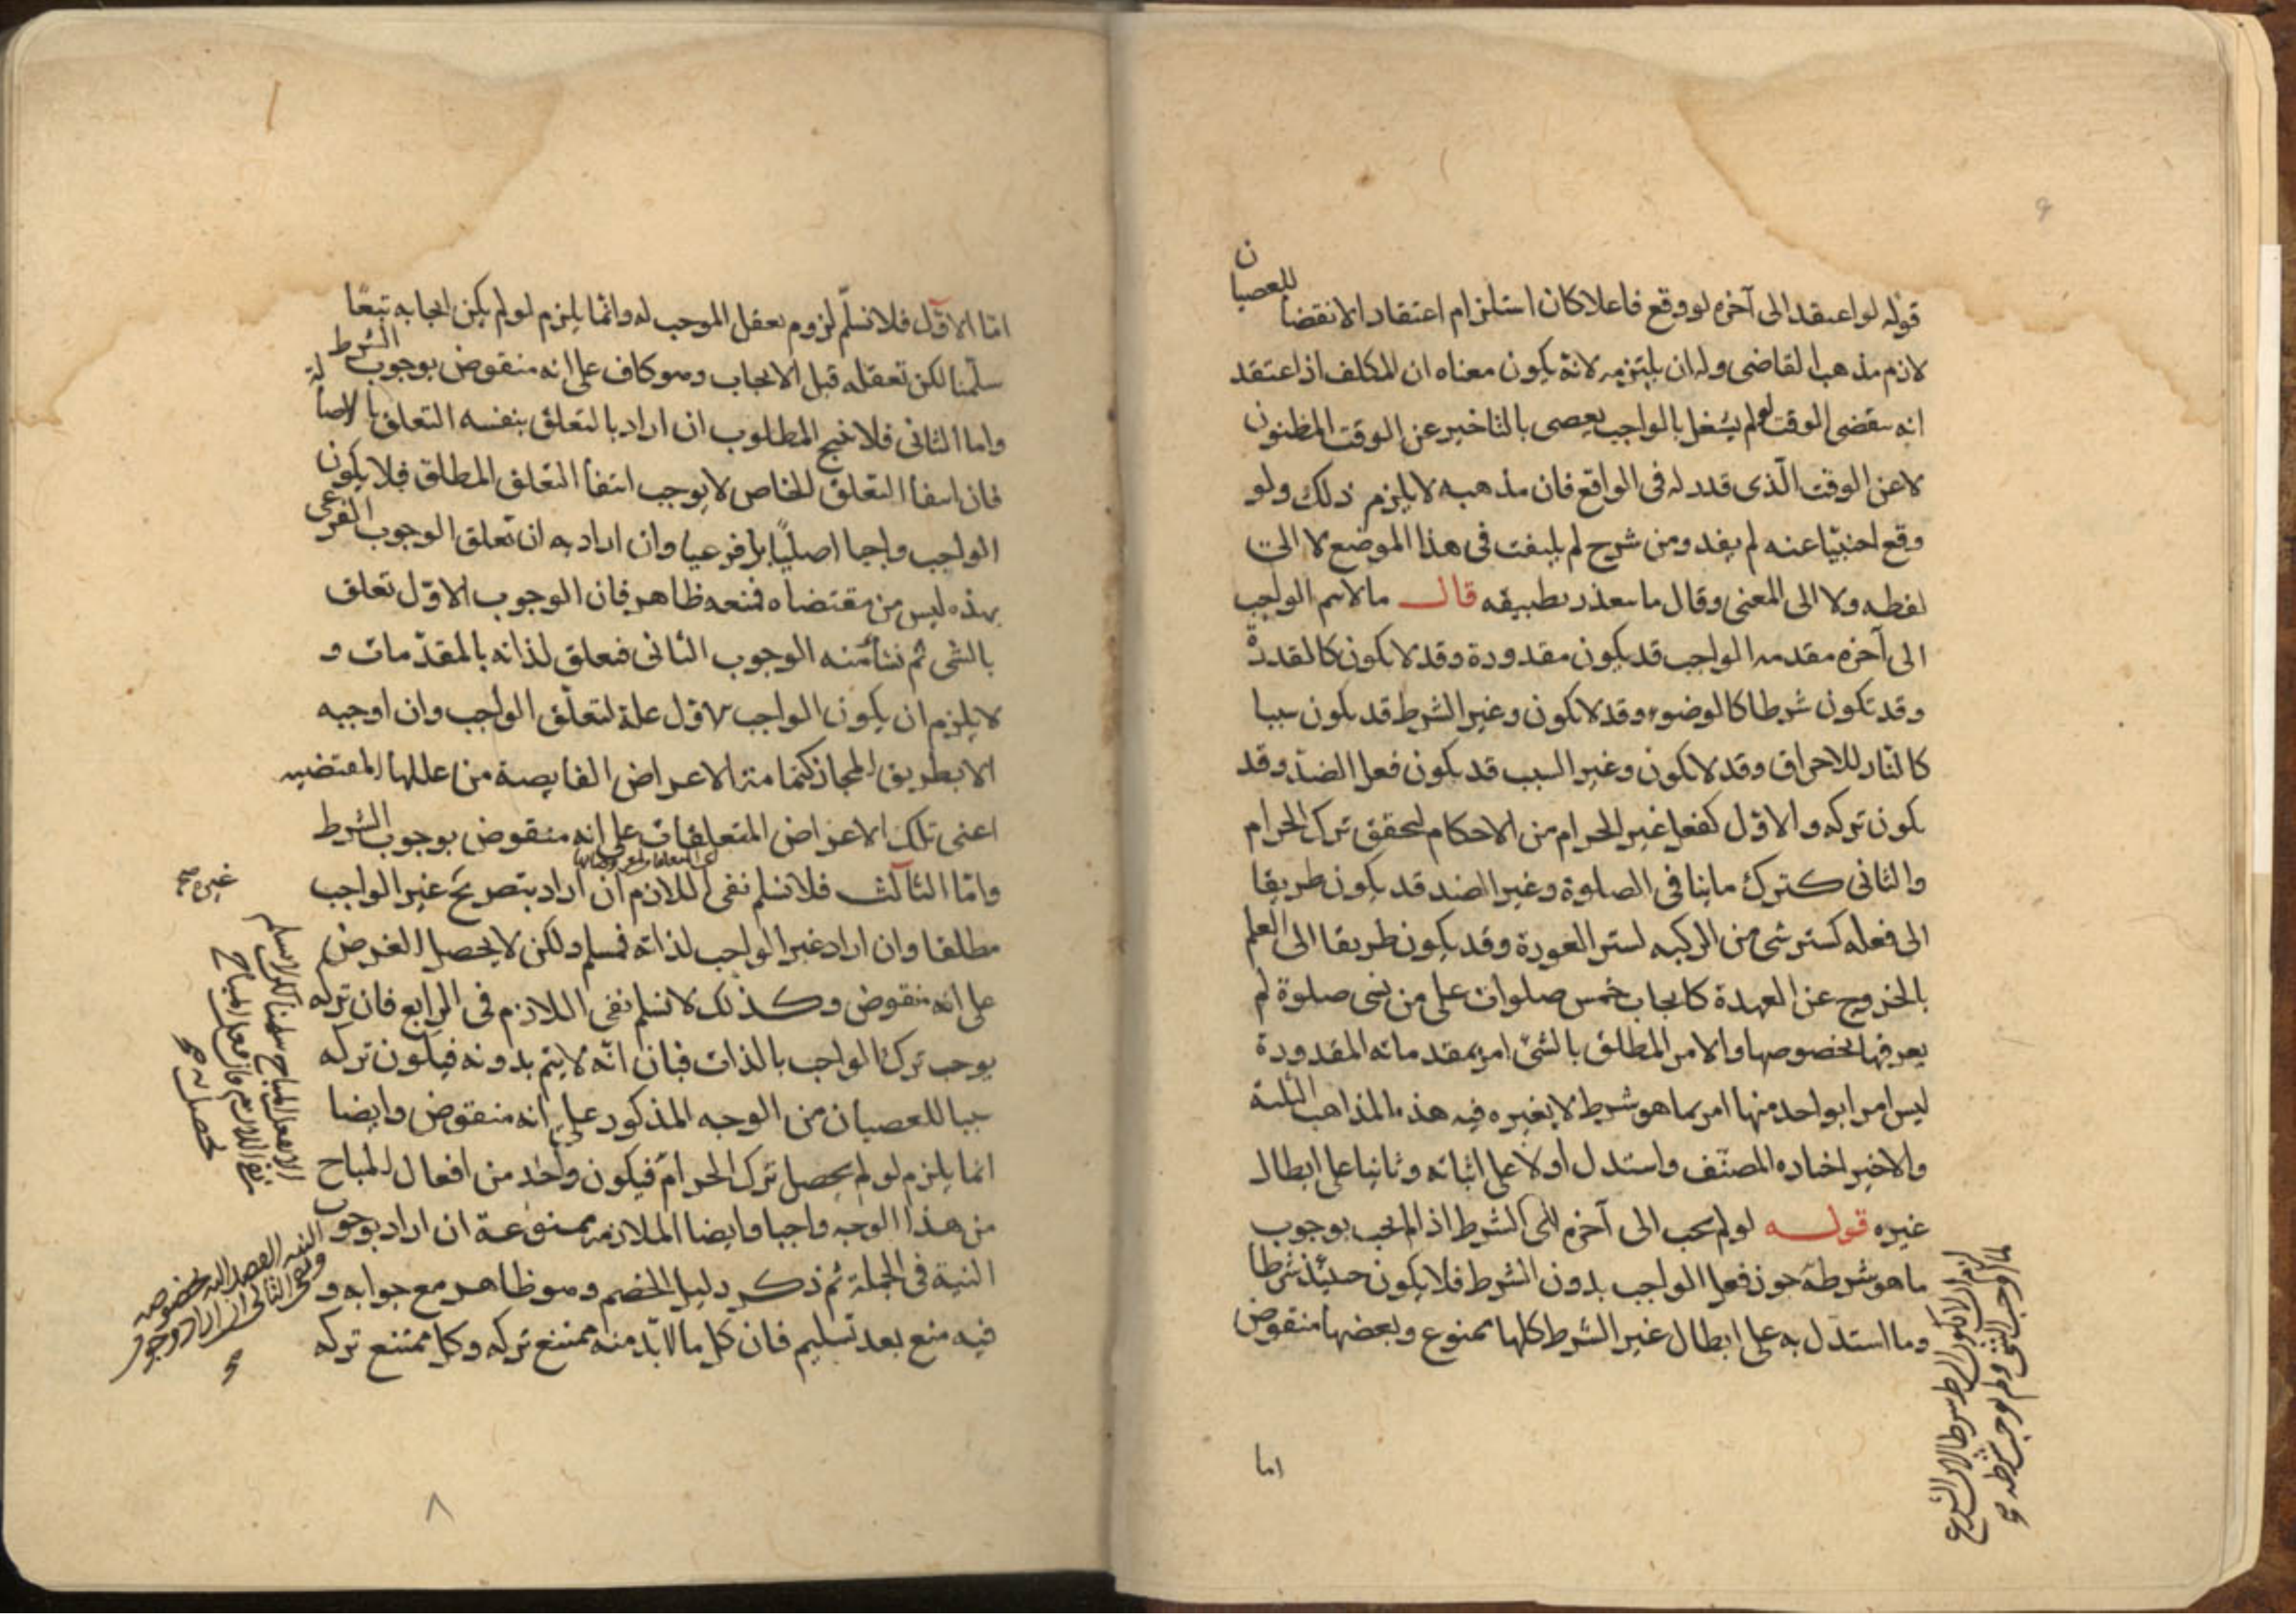 قوله لو اعتقد الى آخره لو وقع فاعلا كان استلزام اعتقاد الانقضا للعصيان
لازم مذهب القاضى وله ان يلتزمه لانه يكون معناه ان المكلف اذ اعتقد
انه سقضى الوقت لو لم يشغل بالواجب يعصى بالتاخير عن الوقت المظنون
لا عن الوقت الذى قدر له فى الواقع فان مذهبه لا يلزم ذلك ولو
وقع اجنبيا عنه لم يفد ومن شرح لم يلتفت فى هذا الموضع لا الى
لفظه ولا الى المعنى وقال ما سعذر تطبيقه قال ما لا سم الواجب
الى آخره مقدمه الواجب قد يكون مقدورة وقد لا يكون كالقدرة
وقد تكون شرطا كالوضوء وقد لا يكون وغير الشرط قد يكون سببا
كالنار للاحراق وقد لا يكون وغير السبب قد يكون فعل الضد وقد
يكون تركه والاول كفعل غير الحرام من الاحكام لتحقق ترك الحرام
والثانى كترك ماينا فى الصلوة وغير الضد قد يكون طريقا
الى فعله كستر شى من الركبه لستر العورة وقد يكون طريقا الى العلم
بالخروج عن العهدة كايجاب خمس صلوات على من نسى صلوة لم
يعرفها بخصوصها والامر المطلق بالشئ امر بمقدماته المقدورة
ليس امرا بواحد منها امر بما هو شرط لا بغيره فيه هذه المذاهب الثلثة
والاخير اختاره المصنف واستدل اولا على اثباته وثانيا على ابطال
غيره قوله لو لم يجب الى آخره اى الشرط اذ لم يجب بوجوب
ما هو شرطه جوز فعل الواجب بدون الشرط فلا يكون حينئذ شرطا
وما استدل به على ابطال غير الشرط كلها ممنوع وبعضها منقوض
اما
اما الاول فلا نسلم لزوم تعقل الموجب له وانما يلزم لو لم يكن ايجابه تبعا
سلمنا لكن تعقله قبل الايجاب وهو كاف على انه منقوض بوجوب الشرط
واما الثانى فلا ينتج المطلوب ان اراد بالتعلق بنفسه التعلق بالاصالة
فان انتفأ التعلق الخاص لا يوجب انتفأ التعلق المطلق فلا يكون
الواجب واجبا اصليا بل فرعيا وان اراد به ان تعلق الوجوب الفرعى
بهذه ليس من مقتضاه فمنعه ظاهر فان الوجوب الاول تعلق
بالشى ثم نشأ منه الوجوب الثانى فتعلق لذاته بالمقدمات و
لا يلزم ان يكون الواجب الاول علة لتعلق الواجب وان اوجبه
الا بطريق المجاز كما مر الاعراض الفايضة من عللها المقتضيه
اعنى تلك الاعراض المتعلقات على انه منقوض بوجوب الشرط
واما الثالث فلا نسلم نفى اللازم ان اراد بتصريح غير الواجب
مطلقا وان اراد غير الواجب لذاته فمسلم ولكن لا يحصل الغرض
على انه منقوض وكذلك لا نسلم نفى اللازم فى الرابع فان تركه
يوجب ترك الواجب بالذات فبان انه لا يتم بدونه فيكون تركه
سببا للعصيان من الوجه المذكور على انه منقوض وايضا
انما يلزم لو لم يحصل ترك الحرام فيكون واحد من افعال المباح
من هذا الوجه واجبا وايضا الملازمه ممنوعة ان اراد بوجوب
النية فى الجملة ثم ذكر دليل الخصم وهو ظاهر مع جوابه و
فيه منع بعد تسليم فان كل ما لا بد منه ممتنع تركه وكل ممتنع تركه
غيره صح
٨